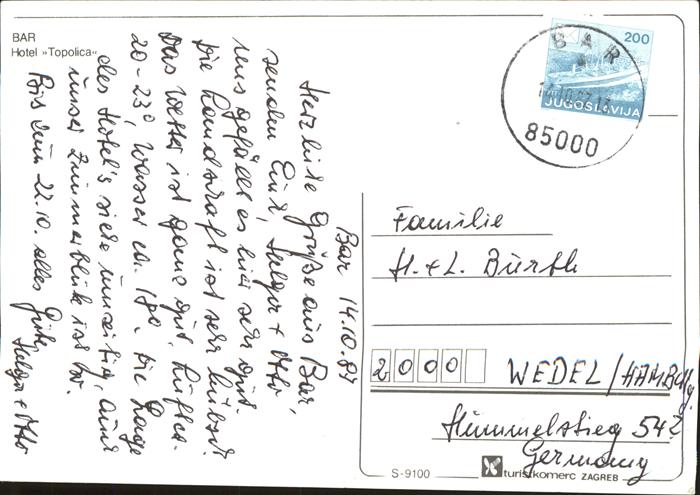 BAR
Hotel »Topolica«
200
BAR
14.10.87
JUGOSLAVIJA
85000
Bar 14.10.87
Herzliche Grüße aus Bar,
senden Euch, + Otto
uns gefällt es hier sehr gut.
Die Landschaft ist sehr hübsch
Das Wetter ist ganz gut, Luftca.
20-23°, Wasser ca. 18°. Die Lage
des Hotel's siehe umseitig, auch
unser Zimmerblick ist so.
Bis zum 22.10. alles Gute
+ Otto
Familie
H. + L.
20000 WEDEL/HAMBURG.
Himmelstieg 54
Germany
S-9100
turistkomerc ZAGREB